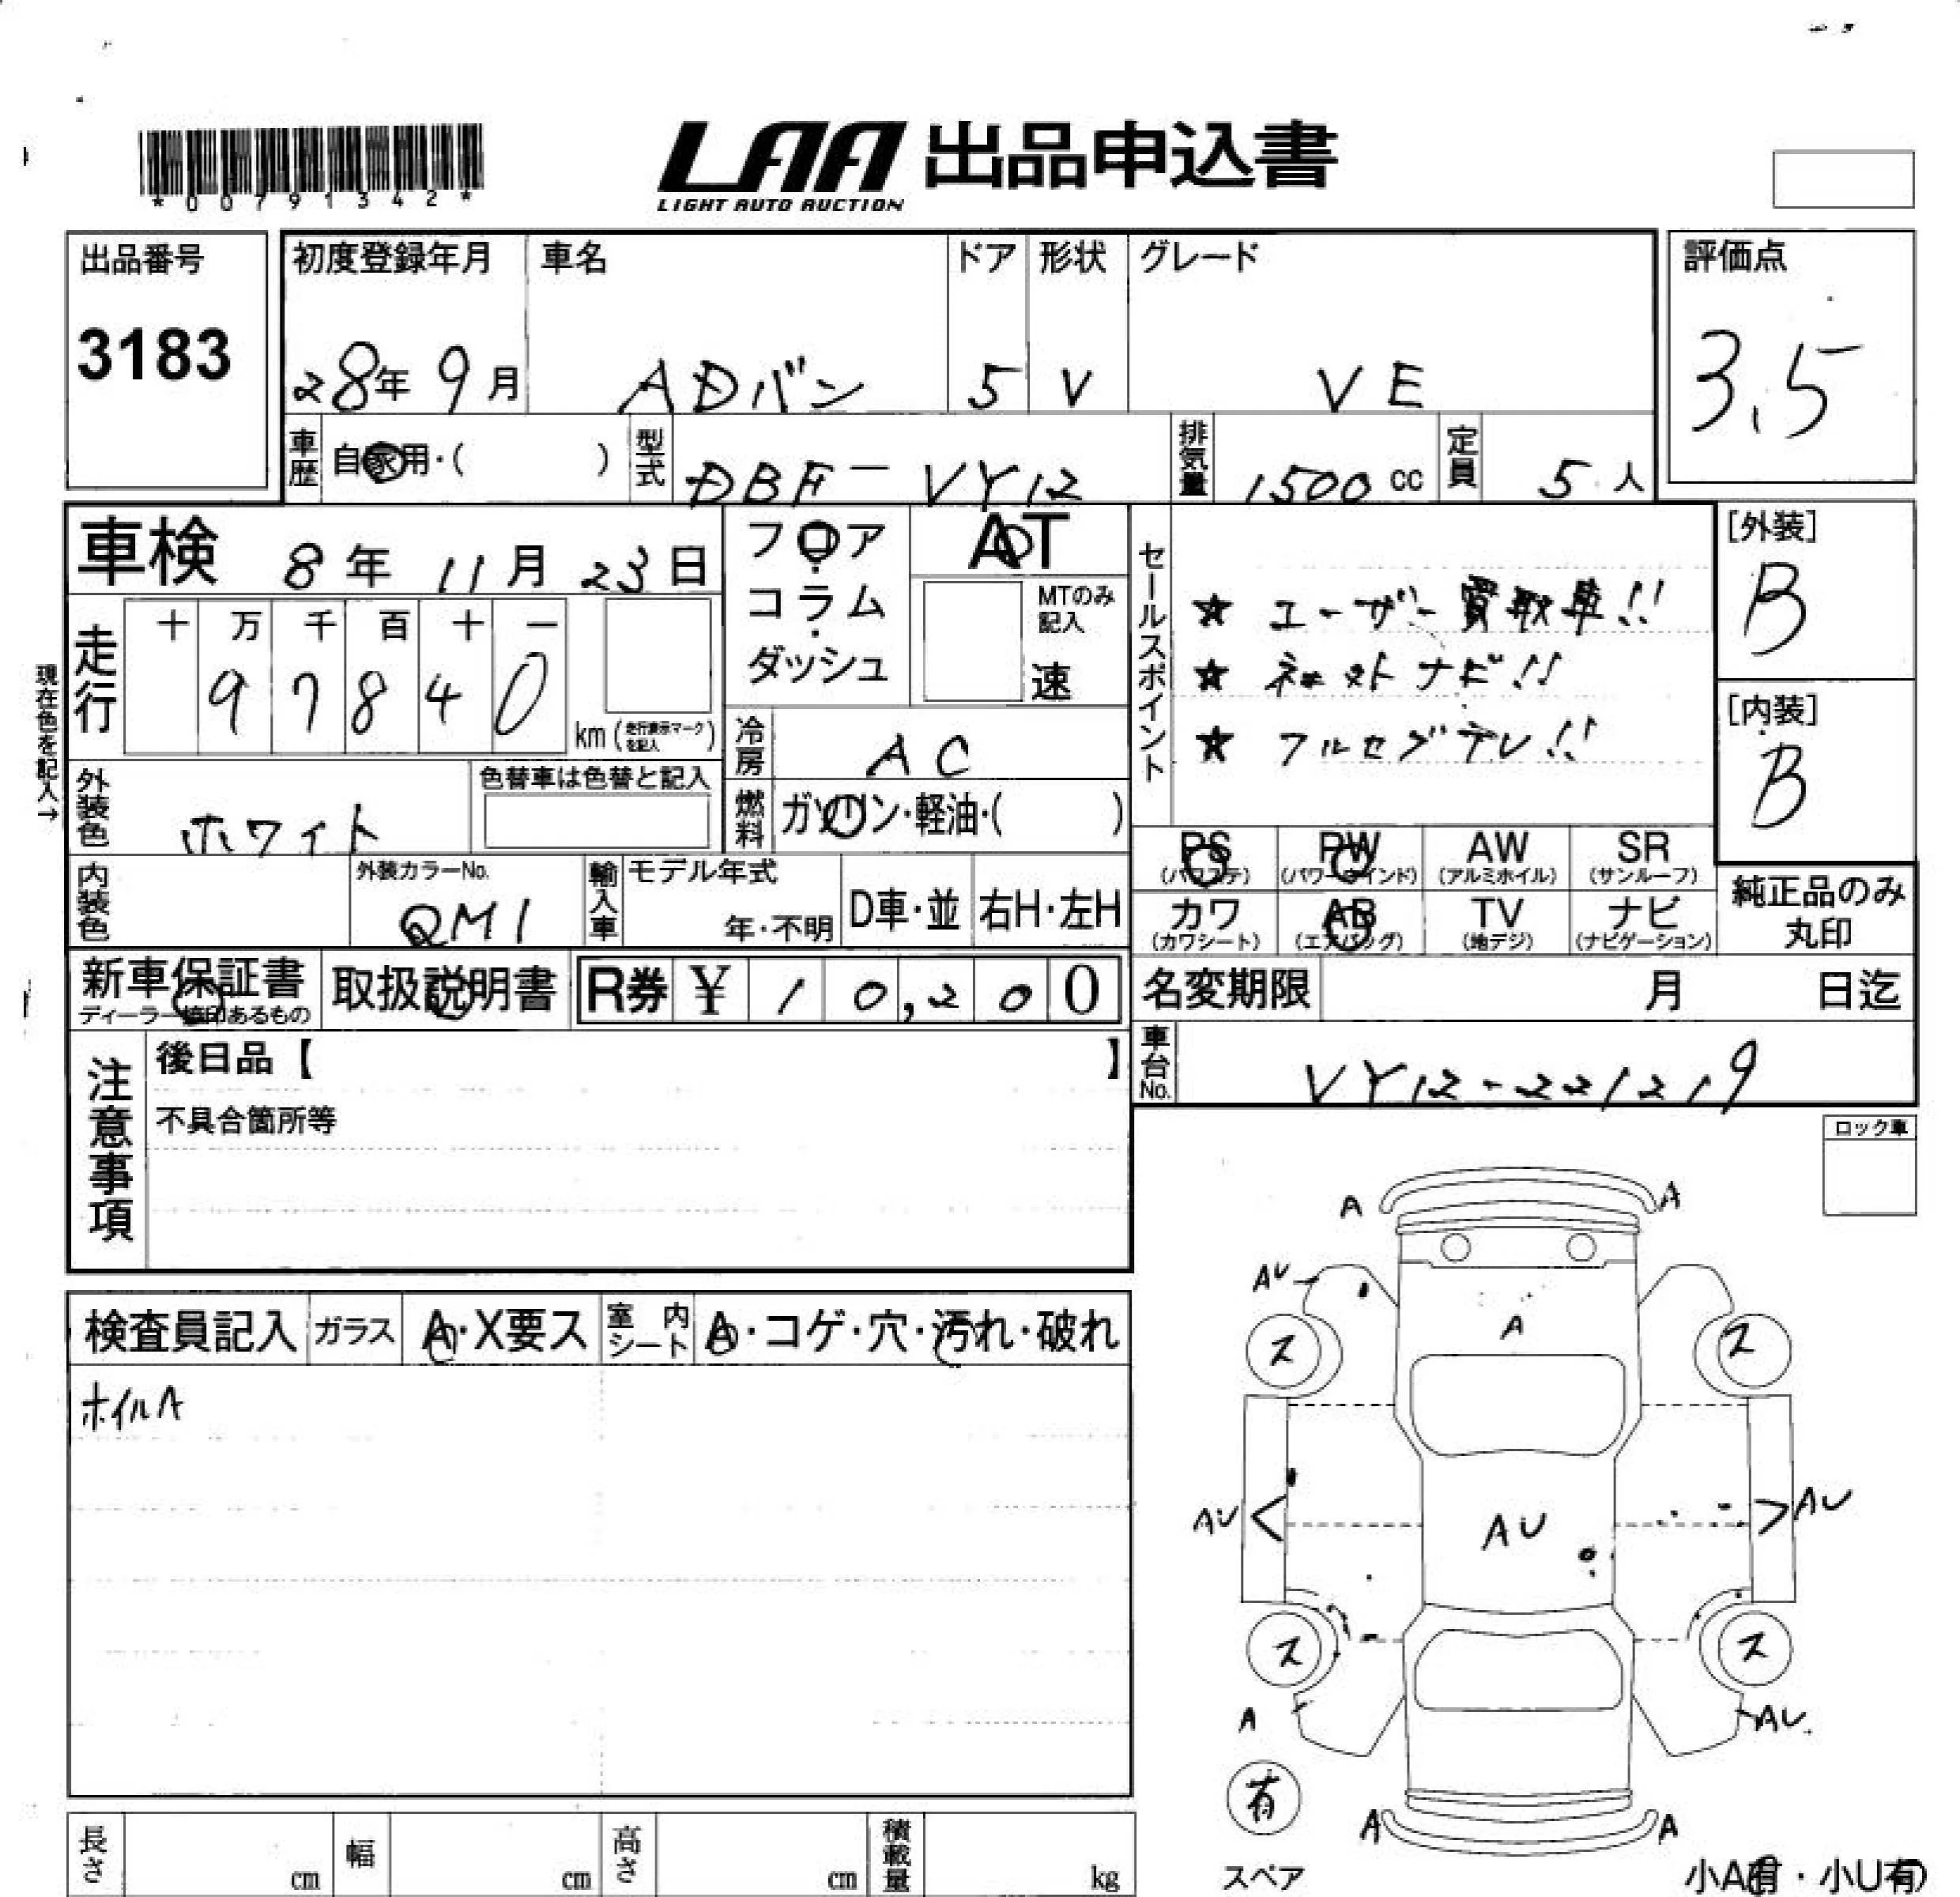 *00791342*
LAA 出品申込書
LIGHT AUTO AUCTION
出品番号
3183
初度登録年月
28年 9月
車名
ADバン
ドア
5
形状
V
グレード
VE
評価点
3.5
車歴 自家用・( )
型式 DBF-VY12
排気量 1500 cc
定員 5 人
車検 8年 11月 23日
フロア
コラム
ダッシュ
AT
MTのみ記入
速
セールスポイント
★ ユーザー買取車!!
★ ネクストナビ!!
★ フルセグテレ!!
[外装]
B
[内装]
B
現在色を記入→
走行
十 万 千 百 十 一
9 7 8 4 0
km (走行表示マークを記入)
冷房 AC
燃料 ガソリン・軽油・( )
外装色 ホワイト
色替車は色替と記入
内装色
外装カラーNo.
QM1
輸入車
モデル年式
年・不明
D車・並
右H・左H
PS (パワステ)
PW (パワーウインド)
AW (アルミホイル)
SR (サンルーフ)
カワ (カワシート)
AB (エアバッグ)
TV (地デジ)
ナビ (ナビゲーション)
純正品のみ
丸印
新車保証書
ディーラー捺印あるもの
取扱説明書
R券 ¥ 10,200
名変期限 月 日迄
車台No. VY12-221219
注意事項
後日品【 】
不具合箇所等
ロック車
検査員記入
ガラス A・X要ス
室内シート A・コゲ・穴・汚れ・破れ
ホイルA
A A
AU
A
ス ス
AU AU AU
ス ス
A AU
有
スペア
A A
小A有・小U有
長さ cm
幅 cm
高さ cm
積載量 kg